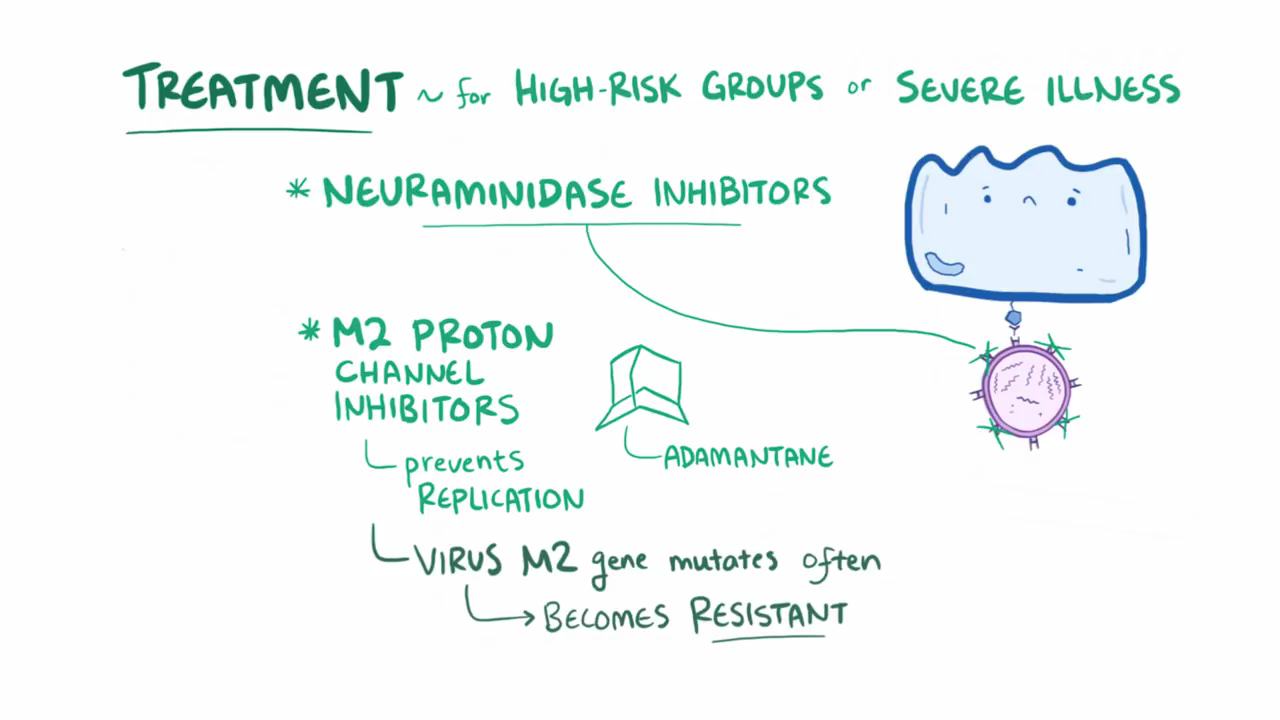 TREATMENT ~ for HIGH-RISK GROUPS or SEVERE ILLNESS
* NEURAMINIDASE INHIBITORS
* M2 PROTON
CHANNEL
INHIBITORS
ADAMANTANE
prevents
REPLICATION
VIRUS M2 gene mutates often
BECOMES RESISTANT